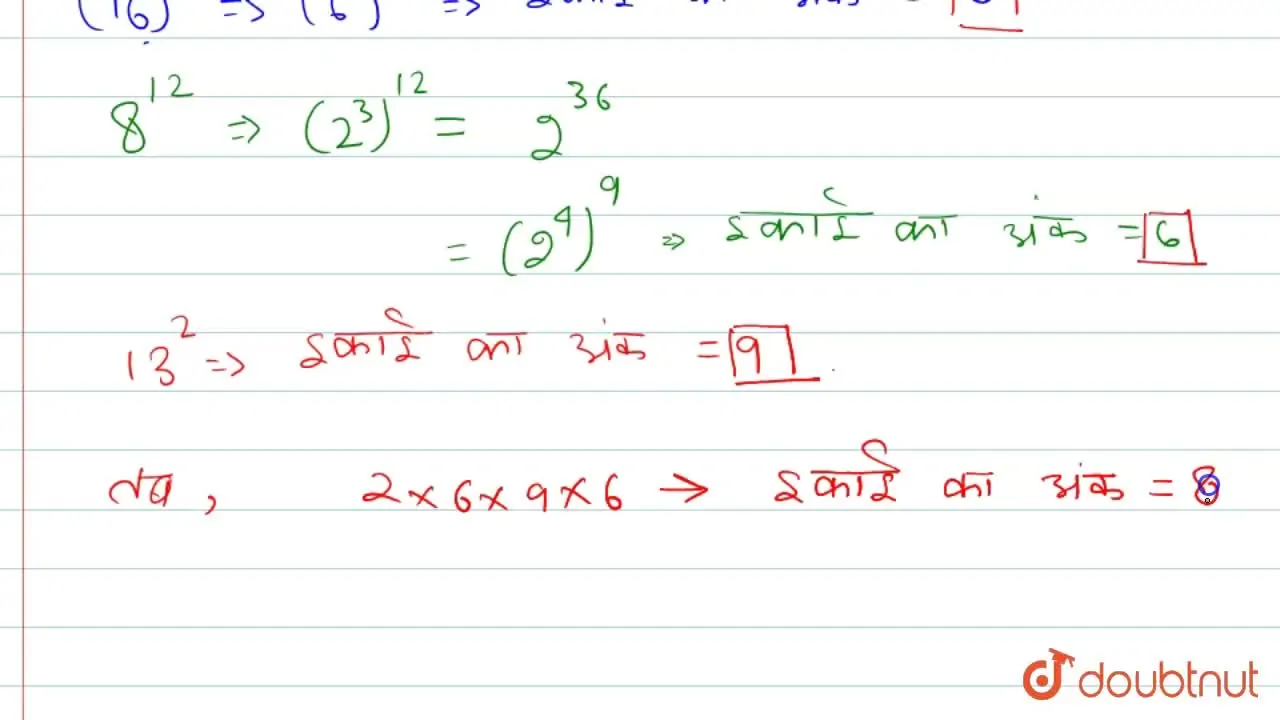 (16) => (6) => इकाई का अंक =
8^12 => (2^3)^12 = 2^36
= (2^4)^9 => इकाई का अंक = 6
13^2 => इकाई का अंक = 9
तब, 2×6×9×6 → इकाई का अंक = 8
doubtnut